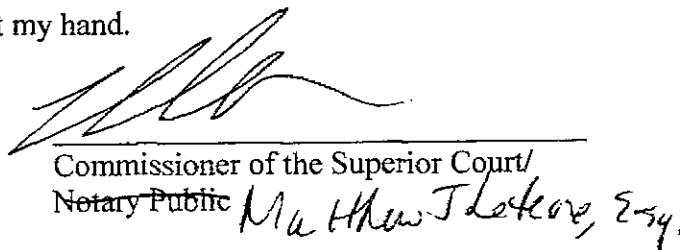 t my hand.
Commissioner of the Superior Court/
Notary Public Matthew J. Esq.